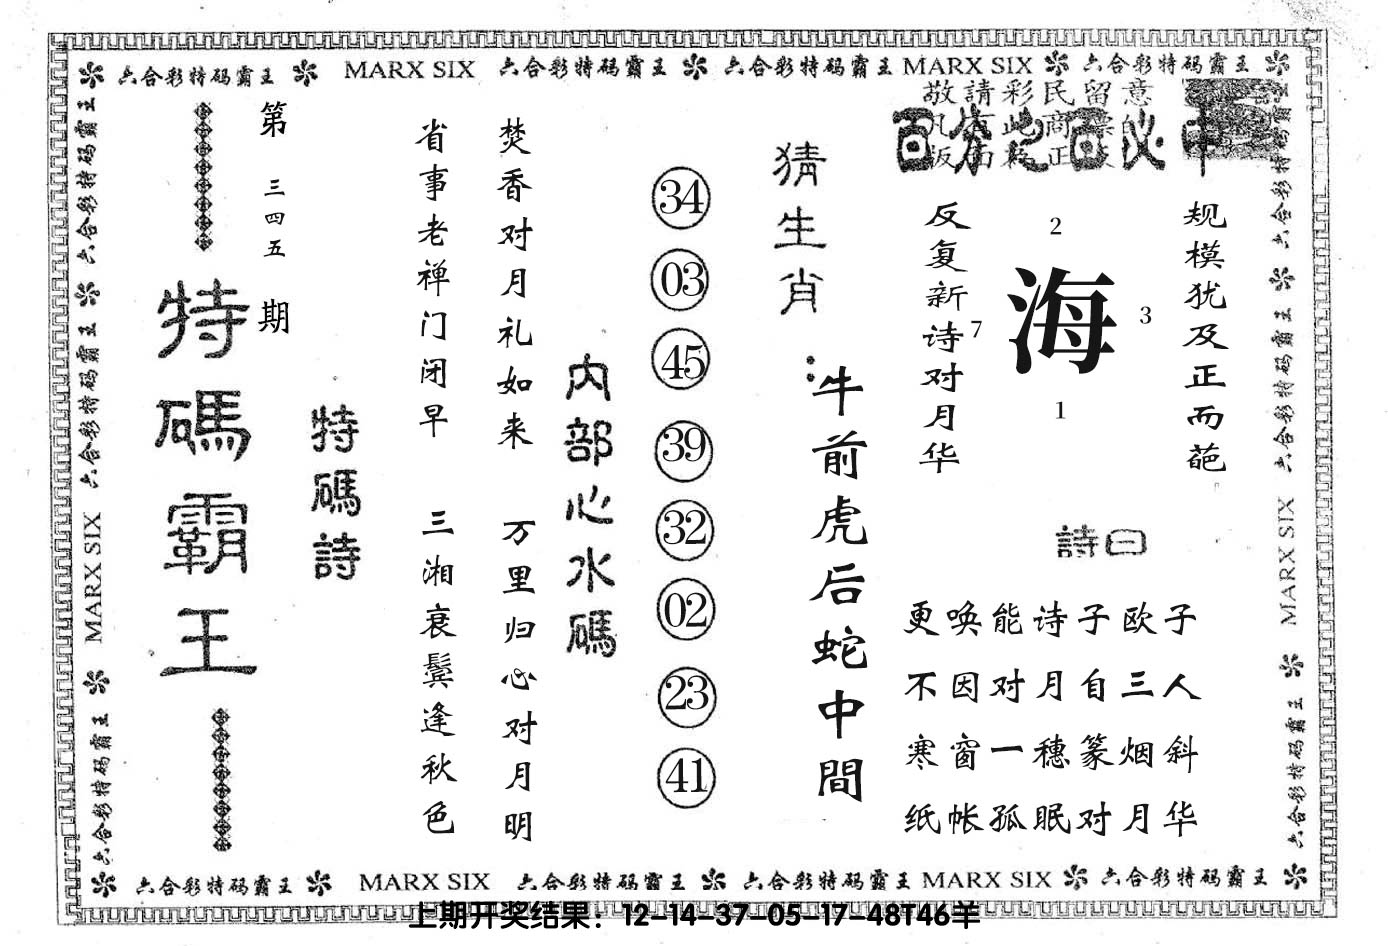 六合彩特码霸王 MARX SIX 六合彩特码霸王 六合彩特码霸王 MARX SIX 六合彩特码霸王
敬請彩民留意
百分之百必中
规模犹及正而葩
2
海
7
3
1
反复新诗对月华
詩曰
更唤能诗子欧子
不因对月自三人
寒窗一穗篆烟斜
纸帐孤眠对月华
猜生肖：
牛前虎后蛇中間
34
03
45
39
32
02
23
41
内部心水碼
焚香对月礼如来 万里归心对月明
省事老禅门闭早 三湘衰鬓逢秋色
特碼詩
第三四五期
特碼霸王
六合彩特码霸王 六合彩特码霸王 MARX SIX 六合彩特码霸王
六合彩特码霸王 六合彩特码霸王 MARX SIX 六合彩特码霸王
六合彩特码霸王 MARX SIX 六合彩特码霸王 六合彩特码霸王 MARX SIX 六合彩特码霸王
上期开奖结果：12-14-37-05-17-48T46羊